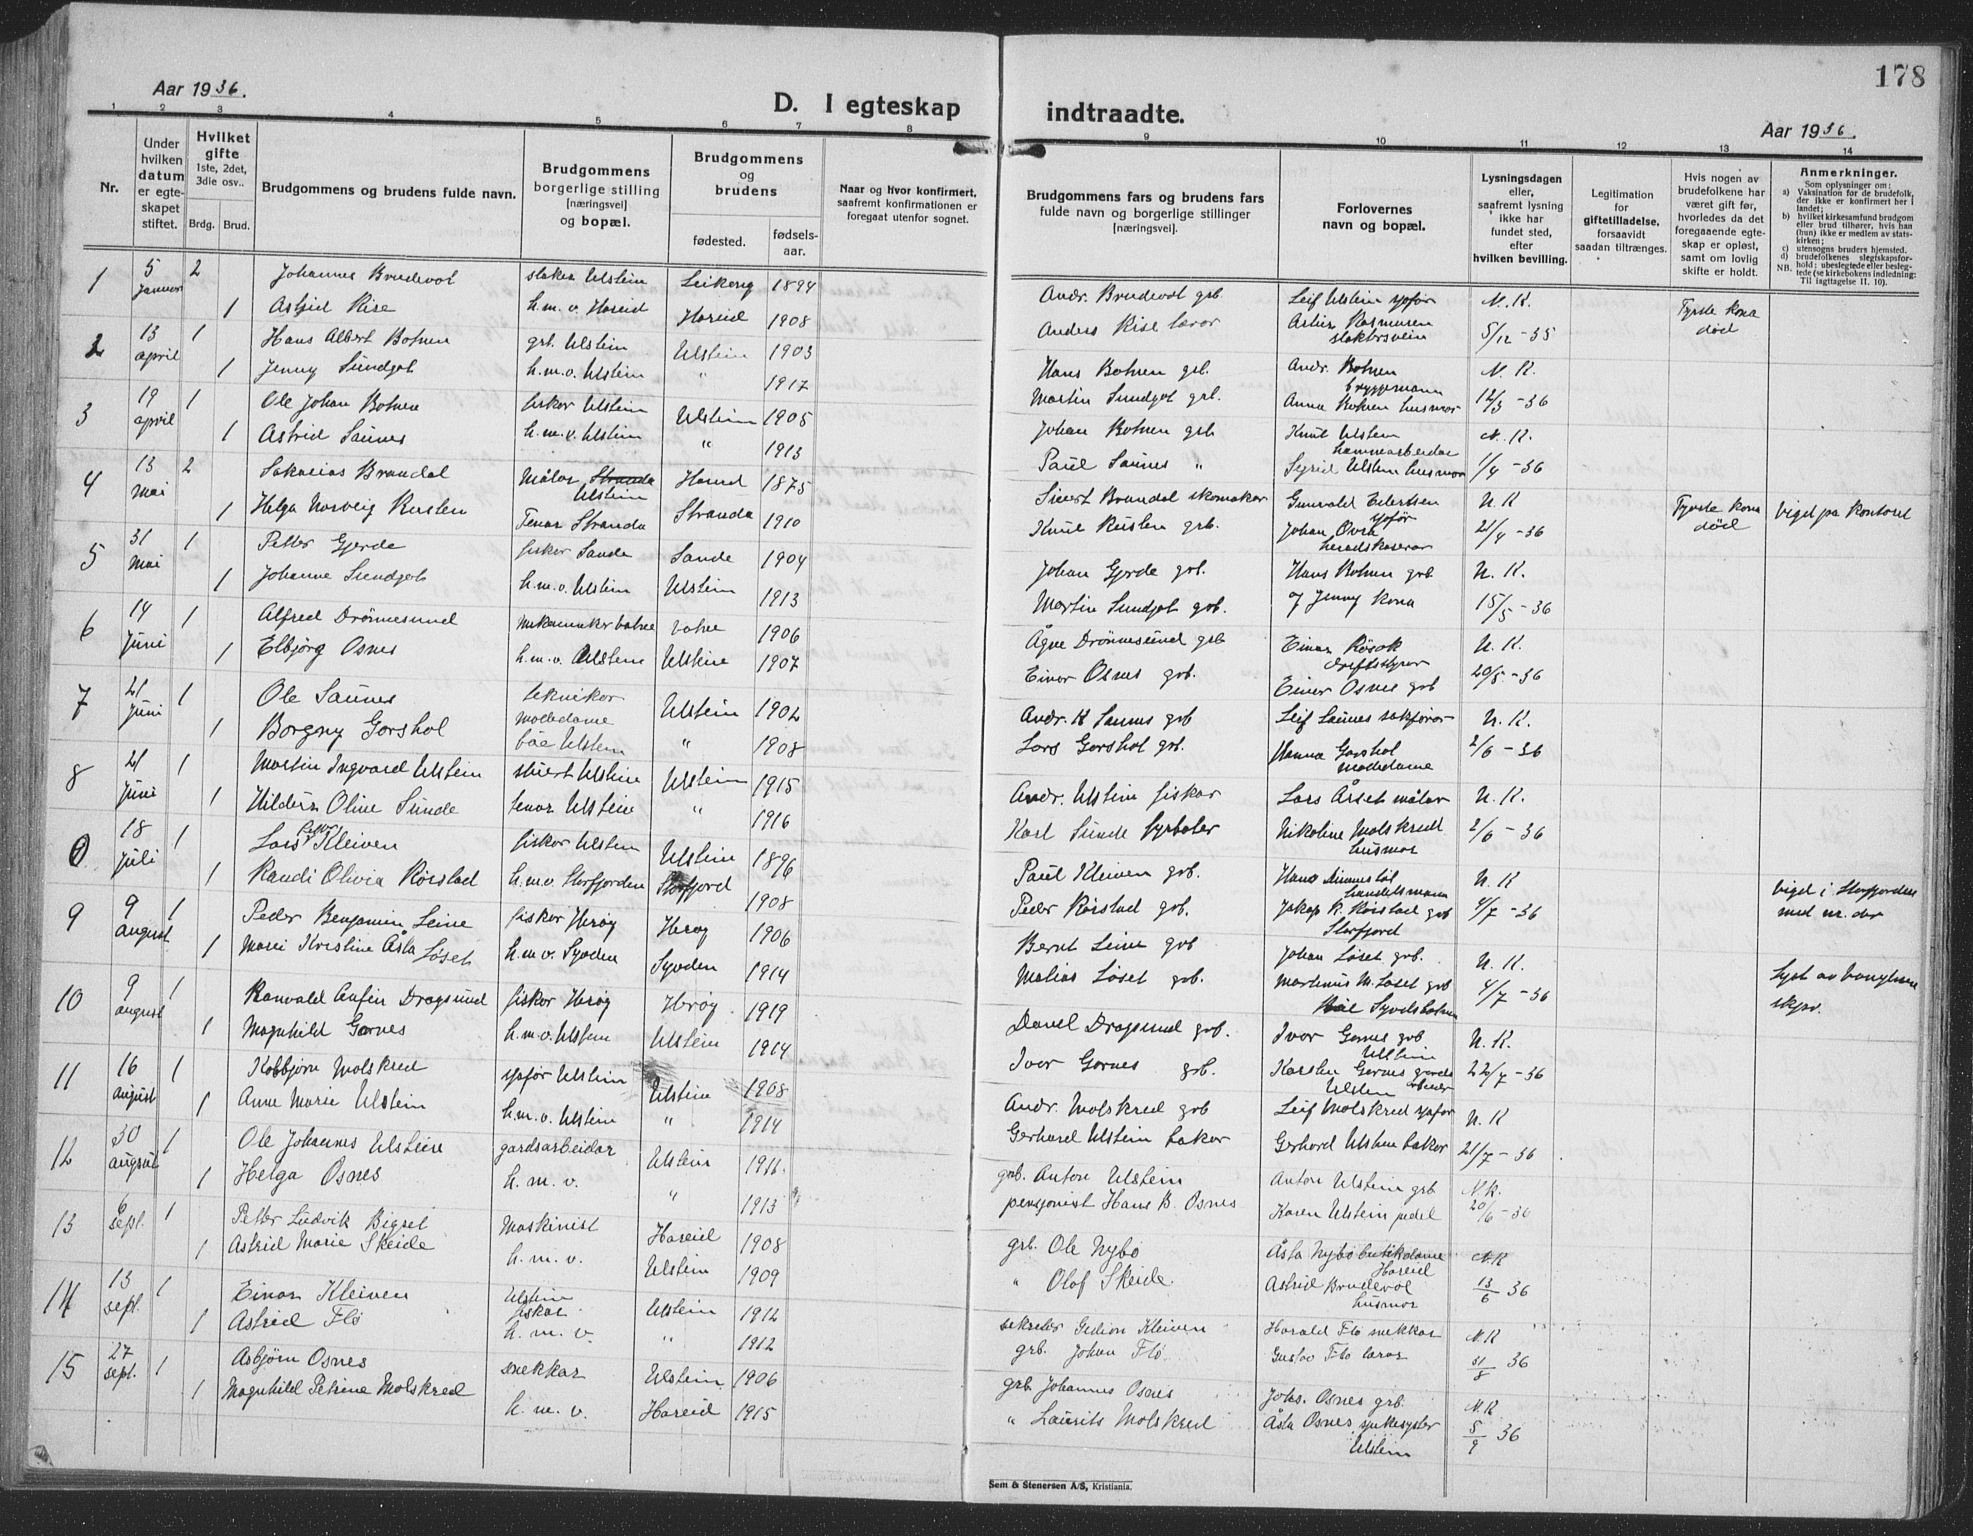 178
Aar 1936.
D. I egteskap indtraadte.
Aar 1936.
1 2 3 4 5 6 7 8 9 10 11 12 13 14
Nr.
Under hvilken datum er egteskapet stiftet.
Hvilket gifte 1ste, 2det, 3die osv..
Brdg. Brud.
Brudgommens og brudens fulde navn.
Brudgommens borgerlige stilling [næringsvei] og bopæl.
Brudgommens og brudens
fødested.
fødselsaar.
Naar og hvor konfirmert, saafremt konfirmationen er foregaat utenfor sognet.
Brudgommens fars og brudens fars fulde navn og borgerlige stillinger [næringsvei].
Forlovernes navn og bopæl.
Lysningsdagen eller, saafremt lysning ikke har fundet sted, efter hvilken bevilling.
Legitimation for giftetilladelse, forsaavidt saadan tiltrænges.
Hvis nogen av brudefolkene har været gift før, hvorledes da det foregaaende egteskap er opløst, samt om lovlig skifte er holdt.
Anmerkninger.
Som oplysninger om:
a) Vaksination for de brudefolk, der ikke er konfirmert her i landet;
b) hvilket kirkesamfund brudgom eller brud tilhører, hvis han (hun) ikke er medlem av statskirken;
c) utensogns bruders hjemsted.
d) brudefolkenes slegtskapsforhold: ubeslegtede eller beslegtede (se kirkebokens indledning:
NB. Til iagttagelse II. 10).
1 5 januar 2 Johannes Brudevol Ulstein 1894 Andr. Brudevol grb. Leif Ulstein sjofør N. K. Fyrste kona død
1 Astrid Rise h.m.v. Hareid Hareid 1908 Anders Rise lærar Rasmusen 5/12 - 35
2 13 april 1 Hans Albert Botnen grb. Ulstein Ulstein 1903 Hans Botnen grb. Andr. Botnen bryggemann N. K.
1 Jenny Sundgot h.m.v. Ulstein " 1917 Martin Sundgot grb. Anna Botnen husmor 12/3 - 36
3 19 april 1 Ole Johan Botnen fiskar Ulstein Ulstein 1905 Johan Botnen grb Knut Ulstein N. K.
1 Astrid Saunes h.m.v. Ulstein " 1913 Paul Saunes " Ulstein husmor 1/4 - 36
4 13 mai 2 Sakarias Brandal Målar Ulstein 1875 Sivert Brandal skomakar Gunvald Eilertsen sjofør N. K Fyrste kona død Vigd på kontoret
1 Helga Rusten Tenar Stranda Stranda 1910 Knut Rusten grb. Johan 21/4 - 36
5 31 mai 1 Petter Gjerde fiskar Sande Sande 1904 Johan Gjerde grb. Hans Botnen grb N. K.
1 Johanne Sundgot h.m.v. Ulstein Ulstein 1913 Martin Sundgot grb. og Jenny kona 15/5 - 36
6 14 juni 1 Alfred Drønnesund 1906 Åge Drønnesund grb Einar N. K.
1 Elbjørg Osnes h.m.v. Ulstein Ulstein 1907 Einar Osnes grb. Einar Osnes grb 20/5 - 36
7 21 juni 1 Ole Saunes teknikar Ulstein 1902 Andr. K Saunes grb Leif Saunes sakførar N. K.
1 Borgny Garshol modedame båe Ulstein " 1908 Lars Garshol grb. Hanna Garshol modedame 2/6 - 36
8 21 juni 1 Martin Ingvard Ulstein stuert Ulstein Ulstein 1915 Andr. Ulstein fiskar Lars Årset målar N. K.
1 Oline Sunde tenar Ulstein " 1916 Karl Sunde fyrbøter Nikoline Molskred husmor 2/6 - 36
18 juli 1 Lars Petter Kleiven fiskar Ulstein Ulstein 1896 Paul Kleiven grb. Hans handelsmann N. K Vigd i Storfjorden
1 Randi Olivia Rørstad h.m.v. Storfjorden Storfjord 1908 Peder Rørstad grb. Jakop R. Rørstad grb Storfjord 4/7 - 36 med nr. der
9 9 august 1 Peder Benjamin Leine fiskar Herøy Herøy 1906 Bernt Leine grb Johan Løset grb. N. K.
1 Marei Kristine Åsta Løset h.m.v. Syvden Syvden 1914 Matias Løset grb. Martinus M. Løset grb 4/7 - 36
10 9 august 1 Ranvald Dragsund fiskar Herøy Herøy 1919 Dragsund grb. Ivar Garnes grb Ulstein N. K.
1 Magnhild Garnes h.m.v. Ulstein Ulstein 1914 Ivar Garnes grb. Karsten Garnes Ulstein 22/7 - 36
11 16 august 1 Kolbjørn Molskred sjofør Ulstein Ulstein 1908 Andr. Molskred grb Leif Molskred sjofør N. K
1 Anne Marie Ulstein h.m.v. Ulstein " 1914 Gerhard Ulstein bakar Gerhard Ulstein bakar 21/7 - 36
12 30 august 1 Ole Johannes Ulstein gardsarbeidar Ulstein 1911 grb. Anton Ulstein Anton Ulstein grb N. K.
1 Helga Osnes h.m.v. " 1913 pensjonist Hans B. Osnes Karen Ulstein 20/6 - 36
13 6 sept. 1 Petter Ludvik Bigset Maskinist Hareid 1908 grb. Ole Nybø Åsta Nybø butikdame Hareid N. K
1 Astrid Marie Skeide h.m.v. Ulstein 1909 " Olaf Skeide Astrid Brudevol husmor 13/6 36
14 13 sept. 1 Einar Kleiven Ulstein fiskar Ulstein 1912 Gidion Kleiven Harald Flø snekkar N. K
1 Astrid Flø h.m.v. " 1912 grb. Johan Flø Gustav Flø lærar 31/8 36
15 27 sept. 1 Asbjørn Osnes snekkar Ulstein 1906 grb. Johannes Osnes Johs. Osnes grb. N. K
1 Magnhild Petrine Molskred h.m.v. Hareid 1915 " Laurits Molskred Åsta Osnes sjukesyster Ulstein 5/9 36
Sem & Stenersen A/S, Kristiania.